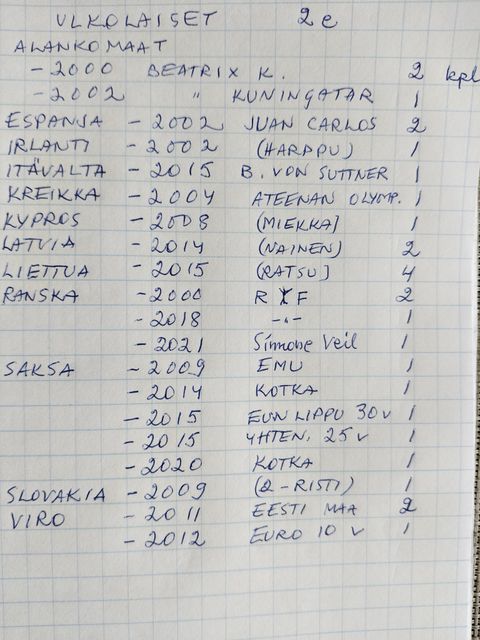 ULKOLAISET 2e
ALANKOMAAT
-2000 BEATRIX K. 2 kpl
-2002 " KUNINGATAR 1
ESPANJA -2002 JUAN CARLOS 2
IRLANTI -2002 (HARPPU) 1
ITÄVALTA -2015 B. VON SUTTNER 1
KREIKKA -2004 ATEENAN OLYMP. 1
KYPROS -2008 (MIEKKA) 1
LATVIA -2014 (NAINEN) 2
LIETTUA -2015 (RATSU) 4
RANSKA -2000 R F 2
-2018 -"- 1
-2021 Simone Veil 1
SAKSA -2009 EMU 1
-2014 KOTKA 1
-2015 EU:N LIPPU 30 v 1
-2015 YHTEN. 25 v 1
-2020 KOTKA 1
SLOVAKIA -2009 (2-RISTI) 1
VIRO -2011 EESTI MAA 2
-2012 EURO 10 V 1